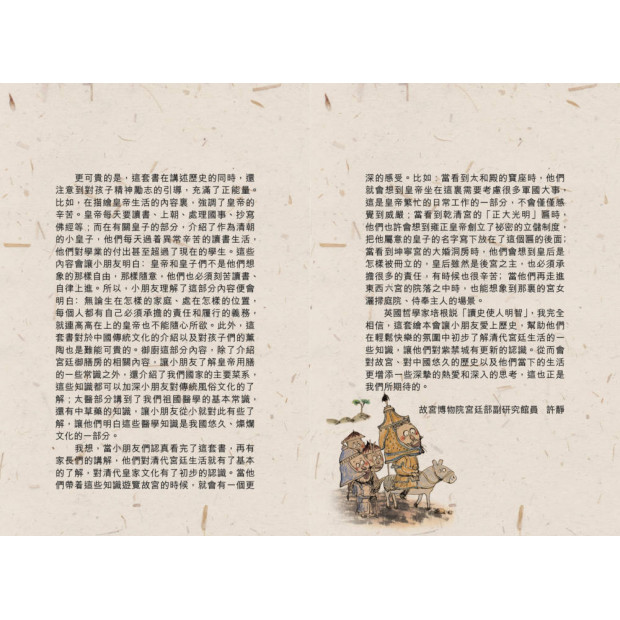 更可貴的是，這套書在講述歷史的同時，還
注意到對孩子精神勵志的引導，充滿了正能量。
比如，在描繪皇帝生活的內容裏，強調了皇帝的
辛苦。皇帝每天要讀書、上朝、處理國事、抄寫
佛經等；而在有關皇子的部分，介紹了作為清朝
的小皇子，他們每天過着異常辛苦的讀書生活，
他們對學業的付出甚至超過了現在的學生。這些
內容會讓小朋友明白：皇帝和皇子們不是他們想
象的那樣自由，那樣隨意，他們也必須刻苦讀書、
自律上進。所以，小朋友理解了這部分內容便會
明白：無論生在怎樣的家庭、處在怎樣的位置，
每個人都有自己必須承擔的責任和履行的義務，
就連高高在上的皇帝也不能隨心所欲。此外，這
套書對於中國傳統文化的介紹以及對孩子們的薰
陶也是難能可貴的。御廚這部分內容，除了介紹
宮廷御膳房的相關內容，讓小朋友了解皇帝用膳
的一些常識之外，還介紹了我們國家的主要菜系，
這些知識都可以加深小朋友對傳統風俗文化的了
解；太醫部分講到了我們祖國醫學的基本常識，
還有中草藥的知識，讓小朋友從小就對此有些了
解，讓他們明白這些醫學知識是我國悠久、燦爛
文化的一部分。
我想，當小朋友們認真看完了這套書，再有
家長們的講解，他們對清代宮廷生活就有了基本
的了解，對清代皇家文化有了初步的認識。當他
們帶着這些知識遊覽故宮的時候，就會有一個更
深的感受。比如：當看到太和殿的寶座時，他們
就會想到皇帝坐在這裏需要考慮很多軍國大事，
這是皇帝繁忙的日常工作的一部分，不會僅僅感
覺到威嚴；當看到乾清宮的「正大光明」匾時，
他們也許會想到雍正皇帝創立了祕密的立儲制度，
把他屬意的皇子的名字寫下放在了這個匾的後面；
當看到坤寧宮的大婚洞房時，他們會想到皇后是
怎樣被冊立的，皇后雖然是後宮之主，也必須承
擔很多的責任，有時候也很辛苦；當他們再走進
東西六宮的院落之中時，也能想象到那裏的宮女
灑掃庭院、侍奉主人的場景。
英國哲學家培根說「讀史使人明智」，我完全
相信，這套繪本會讓小朋友愛上歷史，幫助他們
在輕鬆快樂的氛圍中初步了解清代宮廷生活的一
些知識，讓他們對紫禁城有更新的認識。從而會
對故宮、對中國悠久的歷史以及他們當下的生活
更增添一些深摯的熱愛和深入的思考，這也正是
我們所期待的。
故宮博物院宮廷部副研究館員　許靜